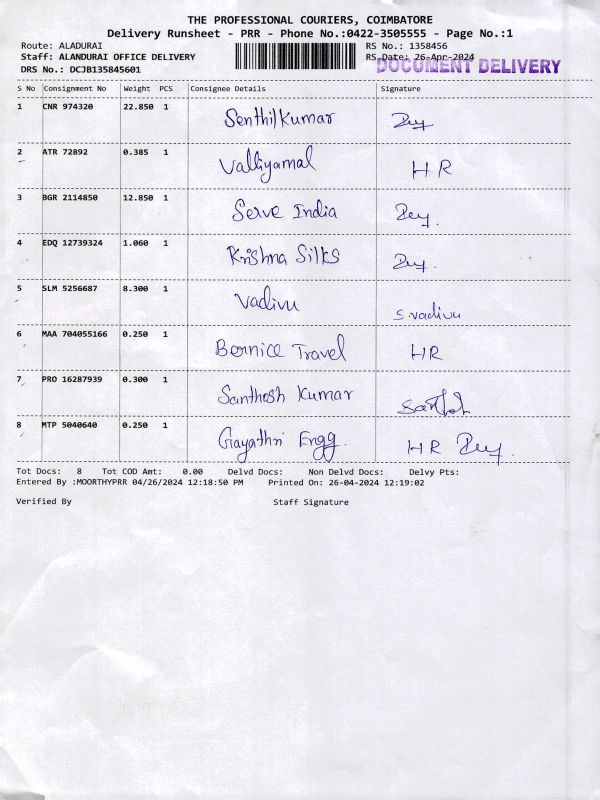 THE PROFESSIONAL COURIERS, COIMBATORE
Delivery Runsheet - PRR - Phone No.:0422-3505555 - Page No.:1
Route: ALADURAI RS No.: 1358456
Staff: ALANDURAI OFFICE DELIVERY RS Date: 26-Apr-2024
DOCUMENT DELIVERY
DRS No.: DCJB135845601
S No Consignment No Weight PCS Consignee Details Signature
1 CNR 974320 22.850 1 Senthilkumar
2 ATR 72892 0.385 1 Valliyamal HR
3 BGR 2114850 12.850 1 Serve India
4 EDQ 12739324 1.060 1 Krishna Silks
5 SLM 5256687 8.300 1 Vadivu S.vadivu
6 MAA 704055166 0.250 1 Bernice Travel HR
7 PRO 16287939 0.300 1 Santhosh Kumar
8 MTP 5040640 0.250 1 Gayathri Engg. HR
Tot Docs: 8 Tot COD Amt: 0.00 Delvd Docs: Non Delvd Docs: Delvy Pts:
Entered By :MOORTHYPRR 04/26/2024 12:18:50 PM Printed On: 26-04-2024 12:19:02
Verified By Staff Signature